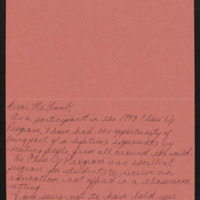 Dear Mr. Gant,
As a participant in the 1993 Close Up
Program, I have had the opportunity of
being part of a lifetime experience by
meeting people from all around the world.
The Close Up Program was excellent
program for students to receive an
education not offered in a classroom
setting.
I am sorry not to have told you